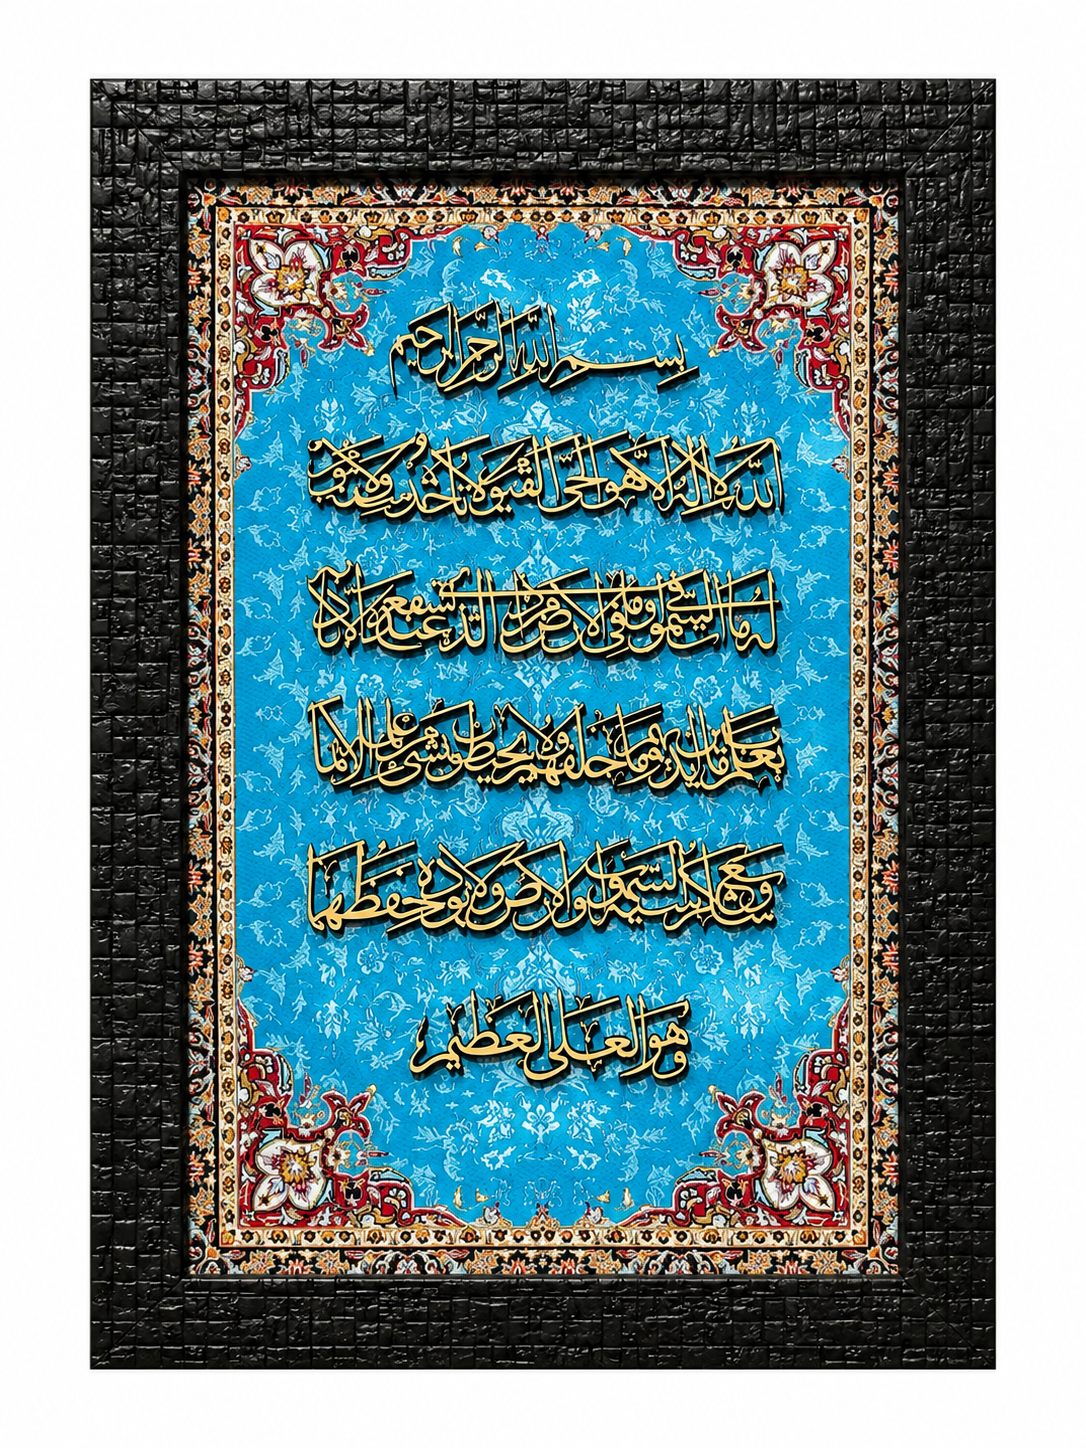 بسم الله الرحمن الرحيم
الله لا اله الا هو الحي القيوم لا تأخذه سنة ولا نوم
له ما في السموت وما في الارض الذي يشفع عنده الا
يعلم ما بين وما خلفهم ولا يحيطون بشيء من علمه الا بما
وسع كرسيه السموت والارض ولا يوده حفظهما
وهو العلي العظيم